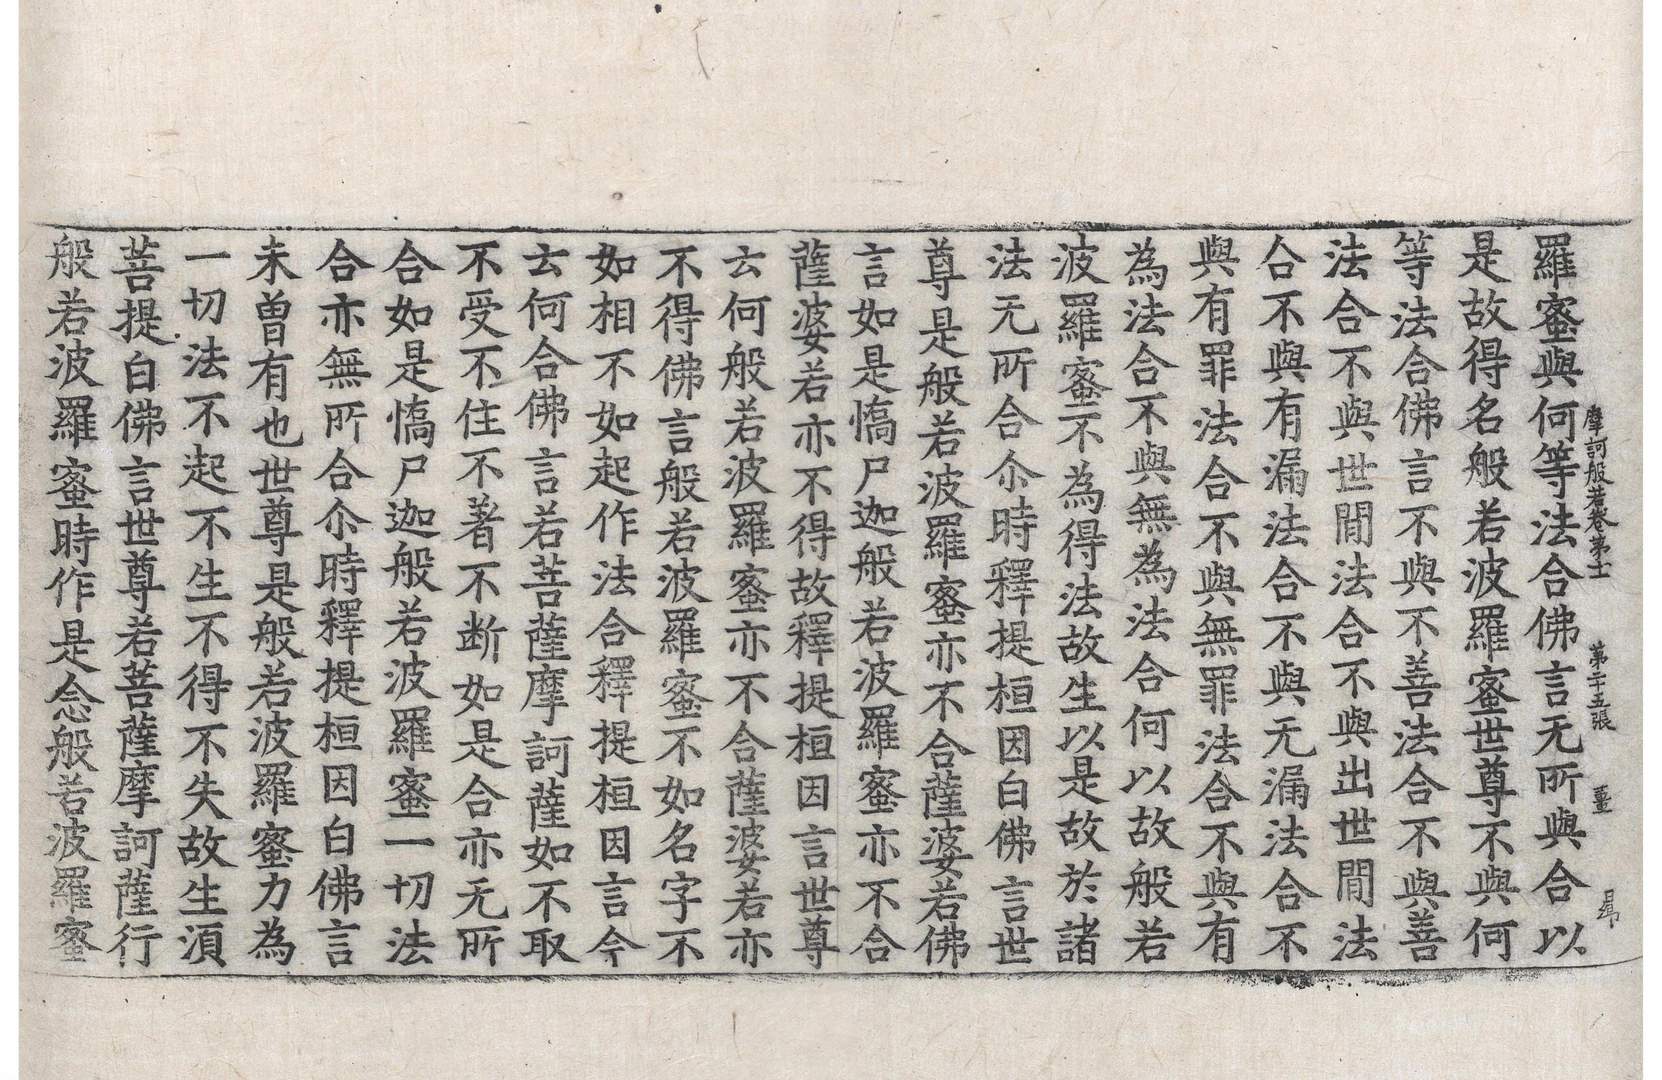 羅蜜與何等法合佛言无所與合以
摩訶般若卷第十一　第二十五張　薑　昻
是故得名般若波羅蜜世尊不與何
等法合佛言不與不善法合不與善
法合不與世間法合不與出世間法
合不與有漏法合不與无漏法合不
與有罪法合不與無罪法合不與有
為法合不與無為法合何以故般若
波羅蜜不為得法故生以是故於諸
法无所合尒時釋提桓因白佛言世
尊是般若波羅蜜亦不合薩婆若佛
言如是憍尸迦般若波羅蜜亦不合
薩婆若亦不得故釋提桓因言世尊
云何般若波羅蜜亦不合薩婆若亦
不得佛言般若波羅蜜不如名字不
如相不如起作法合釋提桓因言今
云何合佛言若菩薩摩訶薩如不取
不受不住不著不断如是合亦无所
合如是憍尸迦般若波羅蜜一切法
合亦無所合尒時釋提桓因白佛言
未曾有也世尊是般若波羅蜜力為
一切法不起不生不得不失故生湏
菩提白佛言世尊若菩薩摩訶薩行
般若波羅蜜時作是念般若波羅蜜